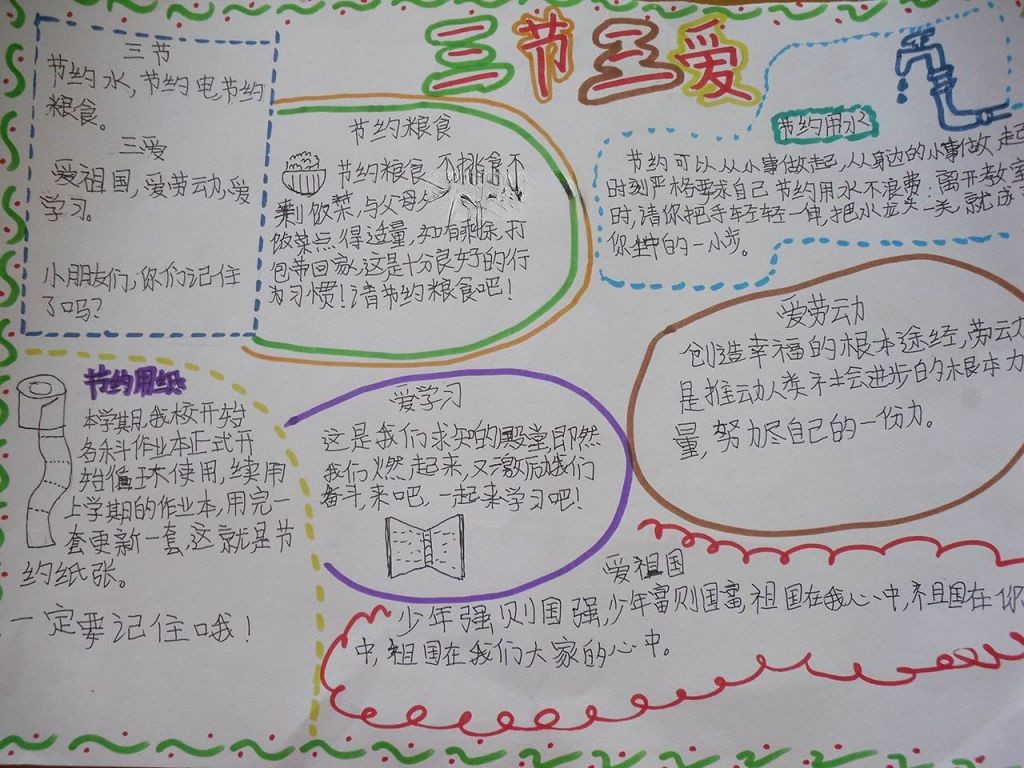 三节三爱
三节
节约水,节约电,节约
粮食。
三爱
爱祖国,爱劳动,爱
学习。
小朋友们,你们记住
了吗?
节约粮食
节约粮食 不挑食不
剩饭菜,与父母
饭菜点得适量,如有剩余,打
包带回家,这是十分良好的行
为习惯!请节约粮食吧!
节约用水
节约可以从小事做起,从身边的小事做起
时刻严格要求自己 节约用水不浪费.离开教室
时,请你把手轻轻一伸,把水龙头一关,就成了
你 中的一小步。
节约用纸
本学期,我校开始
各科作业本正式开
始循环使用,续用
上学期的作业本,用完一
套更新一套,这就是节
约纸张。
一定要记住哦!
爱学习
这是我们求知的殿堂,即然
我们燃起来,又激励我们
奋斗来吧,一起来学习吧!
爱劳动
创造幸福的根本途经,劳动
是推动人类社会进步的根本力
量,努力尽自己的一份力。
爱祖国
少年强则国强,少年富则国富,祖国在我心中,祖国在你
中,祖国在我们大家的心中。